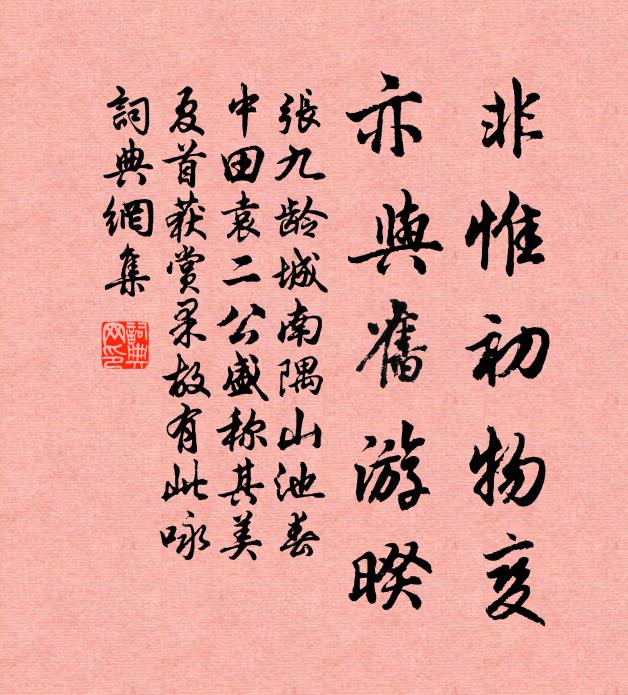 非惟初物变
亦與舊游暌
張九龄城南隅山池春
中田袁二公盛称其美
夏首获赏果故有此咏
詞典網集
詞典
网印